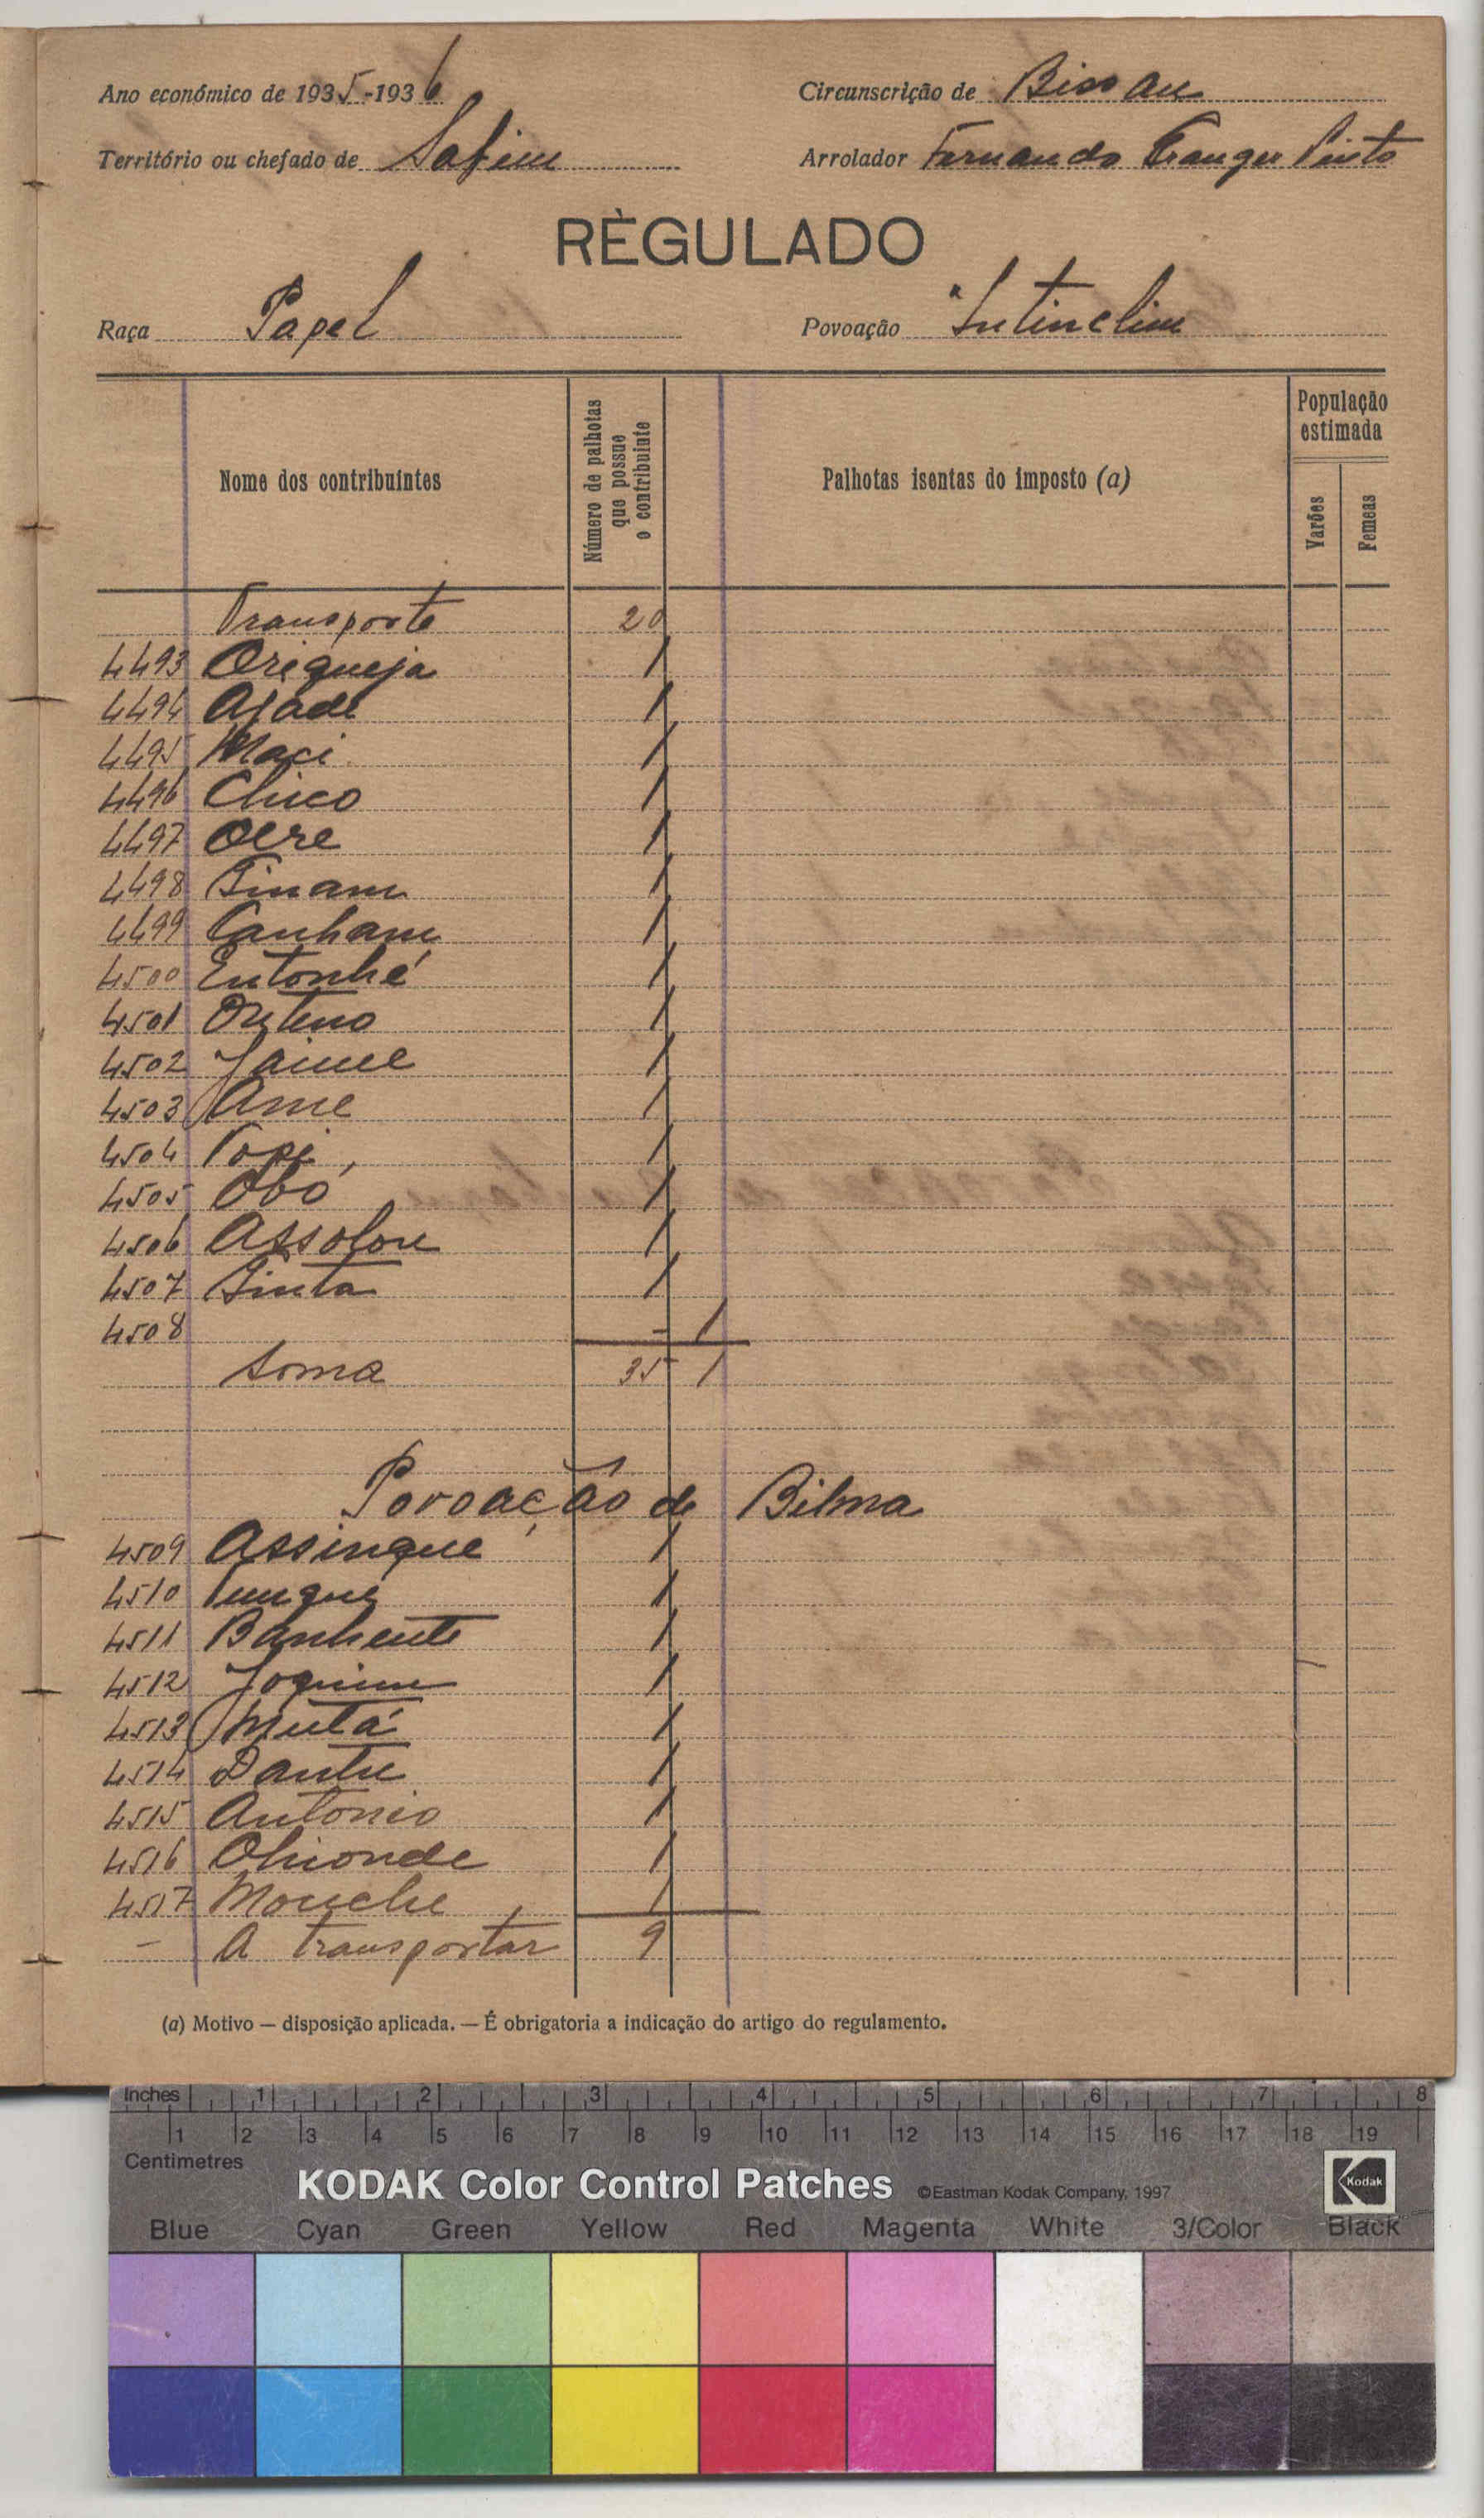 Ano económico de 1935-1936
Circunscrição de Bissau
Território ou chefado de Safim
Arrolador Fernando Pinto
RÈGULADO
Raça Papel
Povoação Intinclim
Nome dos contribuintes
Número de palhotas que possue o contribuinte
Palhotas isentas do imposto (a)
População estimada
Varões
Femeas
Transporte 20
4493 Origueja 1
4494 Ajade 1
4495 Maci 1
4496 Chico 1
4497 Ocre 1
4498 Binam 1
4499 Canham 1
4500 Entonhé 1
4501 Onteno 1
4502 Jaime 1
4503 Ame 1
4504 Topi 1
4505 Obó 1
4506 Assolou 1
4507 Binta 1
4508 - 1
Soma 35 1
Povoação de Bilma
4509 Assinque 1
4510 1
4511 Banhente 1
4512 Joquim 1
4513 Mutá 1
4514 Dantu 1
4515 Antonio 1
4516 Ohionde 1
4517 Mouche 1
- A transportar 9
(a) Motivo — disposição aplicada. — É obrigatoria a indicação do artigo do regulamento.
Inches 1 2 3 4 5 6 7 8
1 2 3 4 5 6 7 8 9 10 11 12 13 14 15 16 17 18 19
Centimetres
KODAK Color Control Patches ©Eastman Kodak Company, 1997 Kodak
Blue Cyan Green Yellow Red Magenta White 3/Color Black